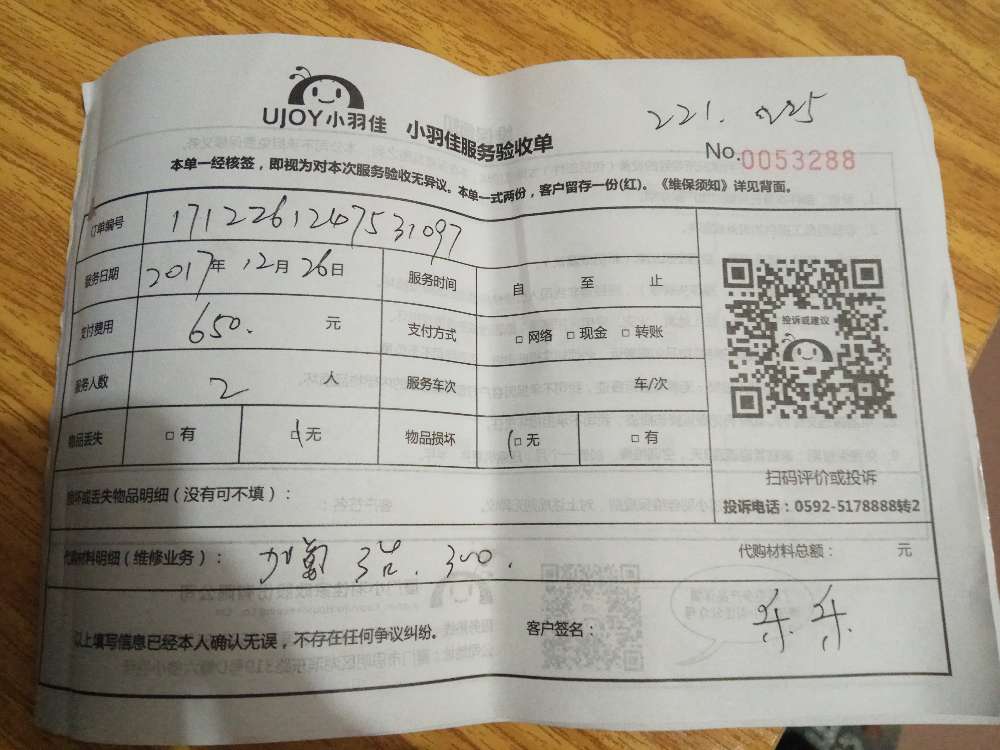 221.225
UJOY小羽佳 小羽佳服务验收单
No.0053288
本单一经核签，即视为对本次服务验收无异议。本单一式两份，客户留存一份(红)。《维保须知》详见背面。
订单编号 17122612407531097
服务日期 2017年12月26日 服务时间 自 至 止
支付费用 650. 元 支付方式 □网络 □现金 □转账
投诉或建议
服务人数 2 人 服务车次 车/次
物品丢失 □有 □无 物品损坏 □无 □有
扫码评价或投诉
损坏或丢失物品明细（没有可不填）：
投诉电话：0592-5178888转2
代购材料明细（维修业务）： 300. 代购材料总额： 元
以上填写信息已经本人确认无误，不存在任何争议纠纷。 客户签名：